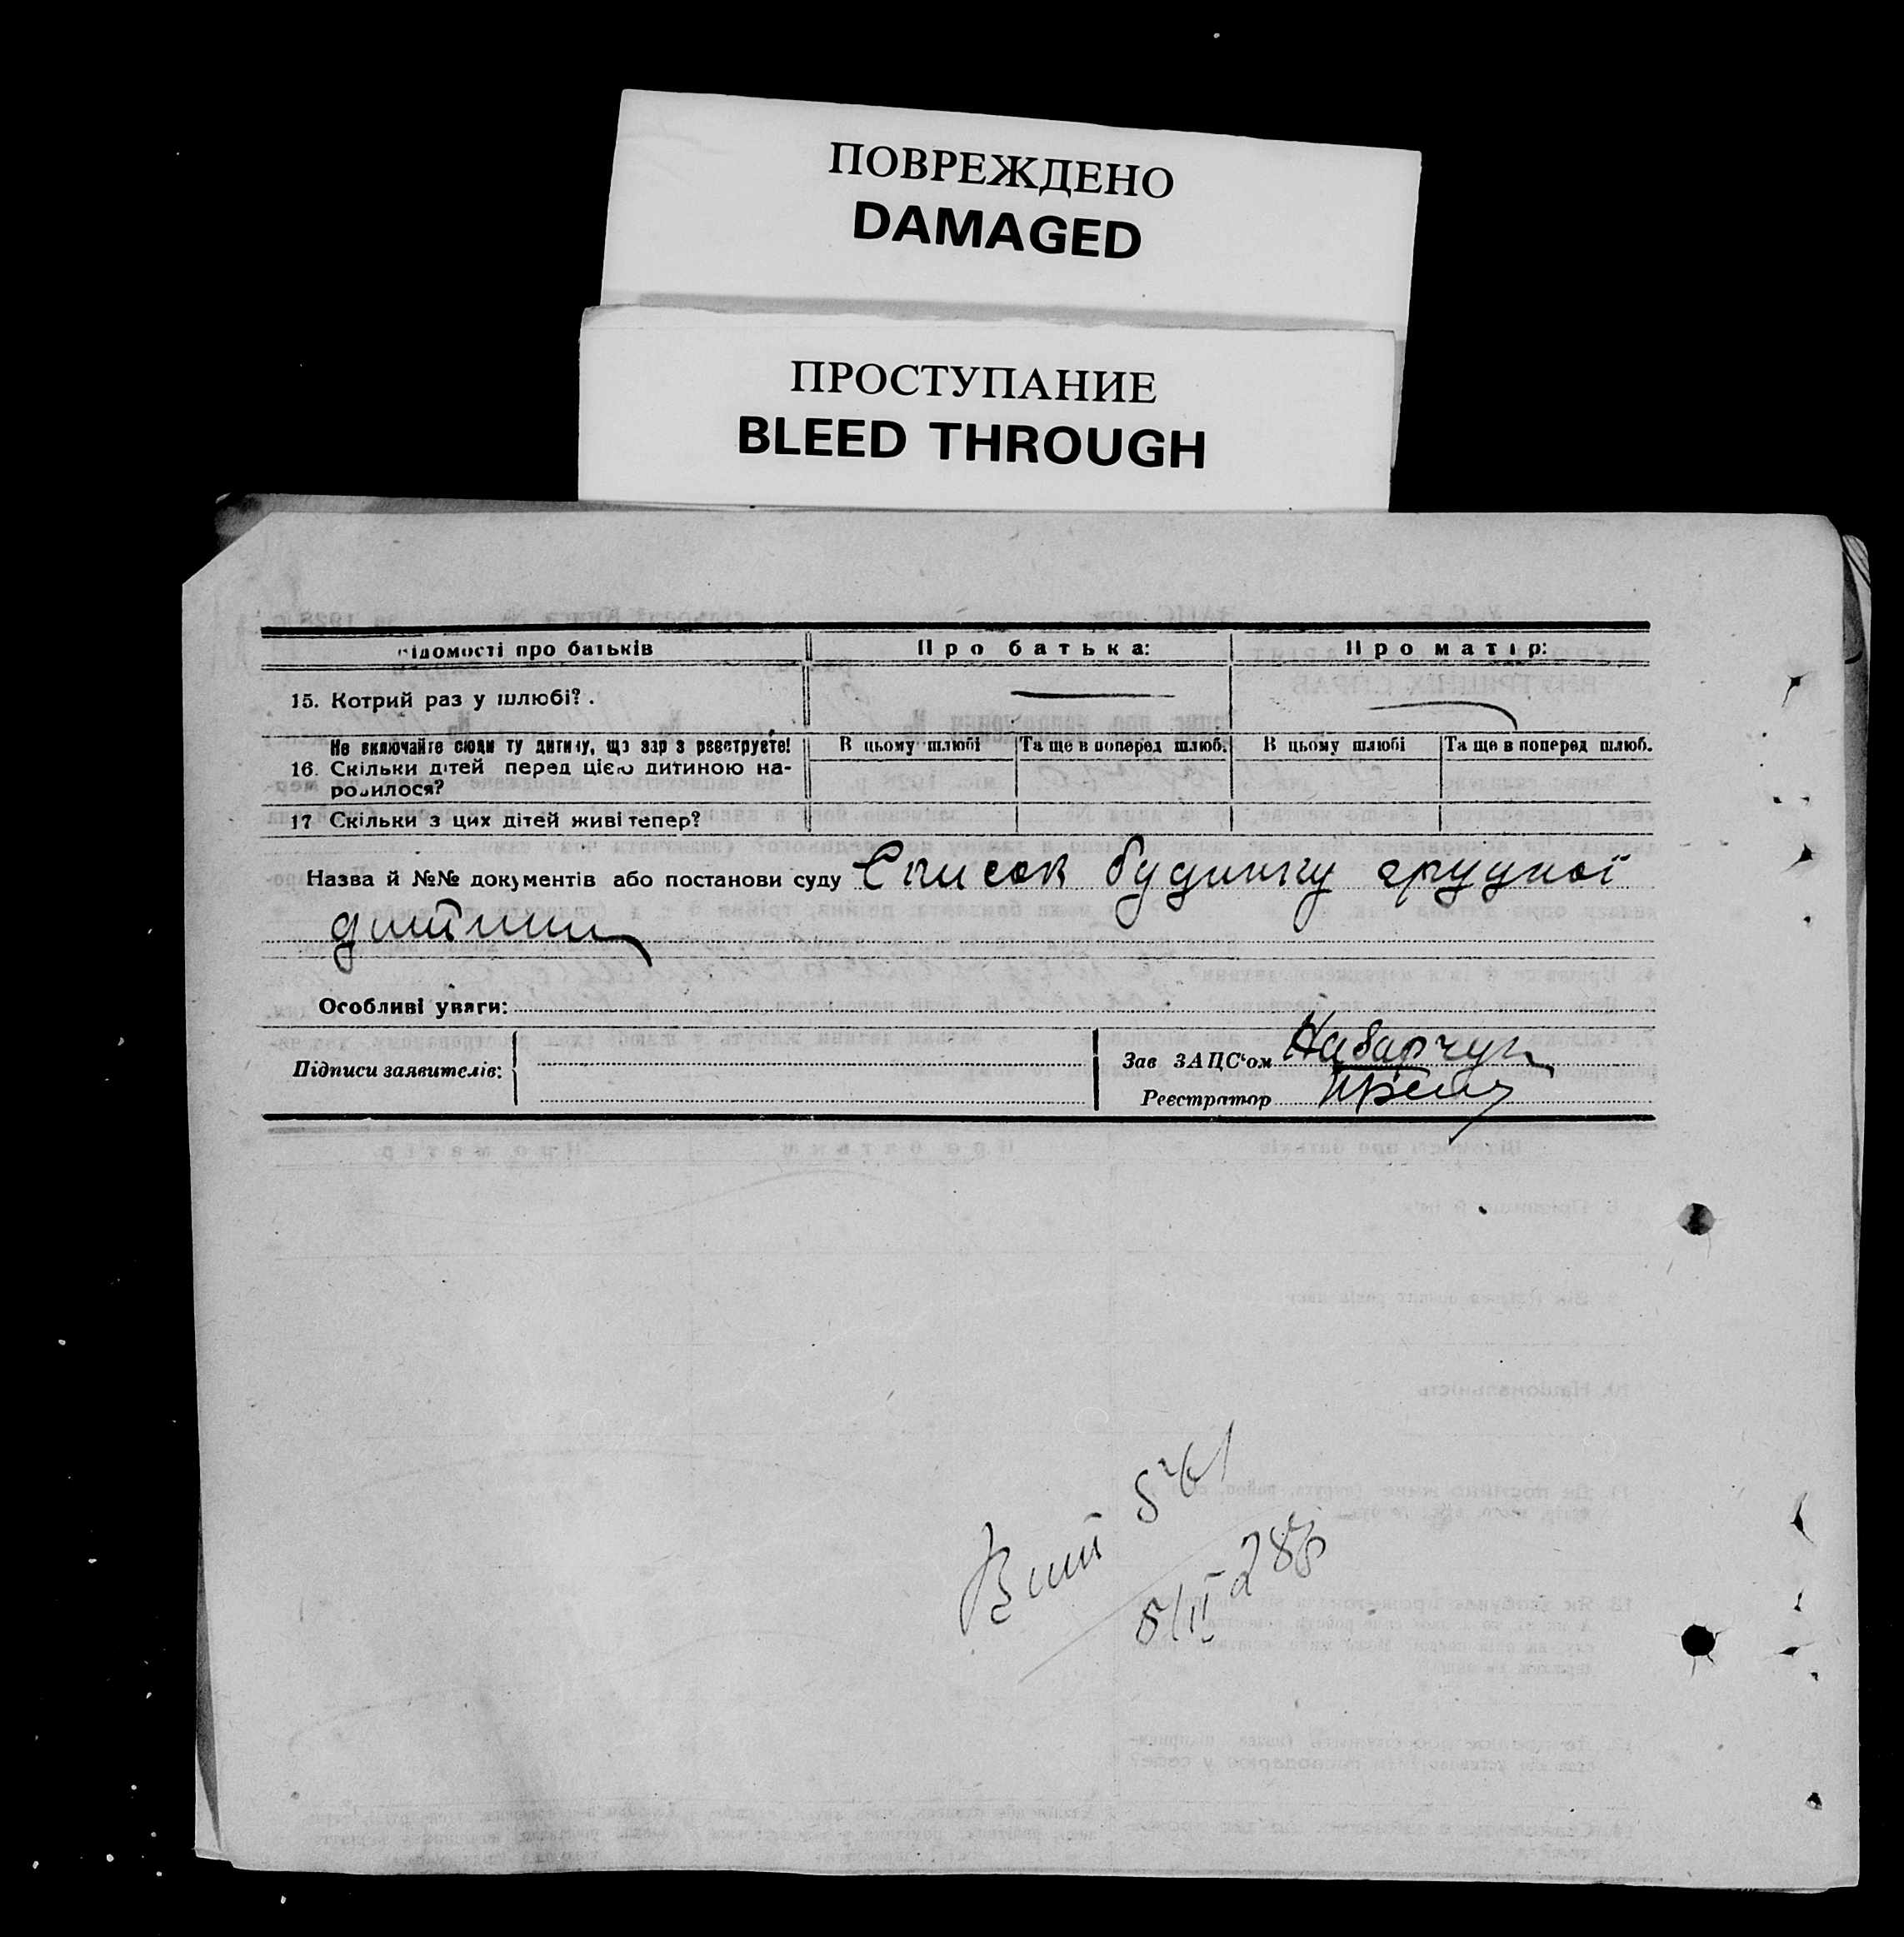 ПОВРЕЖДЕНО
DAMAGED
ПРОСТУПАНИЕ
BLEED THROUGH
ідомості про батьків Про батька: Про матір:
15. Котрий раз у шлюбі?.
Не включайте сюди ту дитину, що зараз реєструєте! В цьому шлюбі Та ще в поперед шлюб. В цьому шлюбі Та ще в поперед шлюб.
16. Скільки дітей перед цією дитиною на-
родилося?
17 Скільки з цих дітей живі тепер?
Назва й №№ документів або постанови суду Список будинку грудної
дитини
Особливі уваги:
Підписи заявителів: Зав ЗАЦС'ом
Реєстратор
Вит 561
5/II 28р